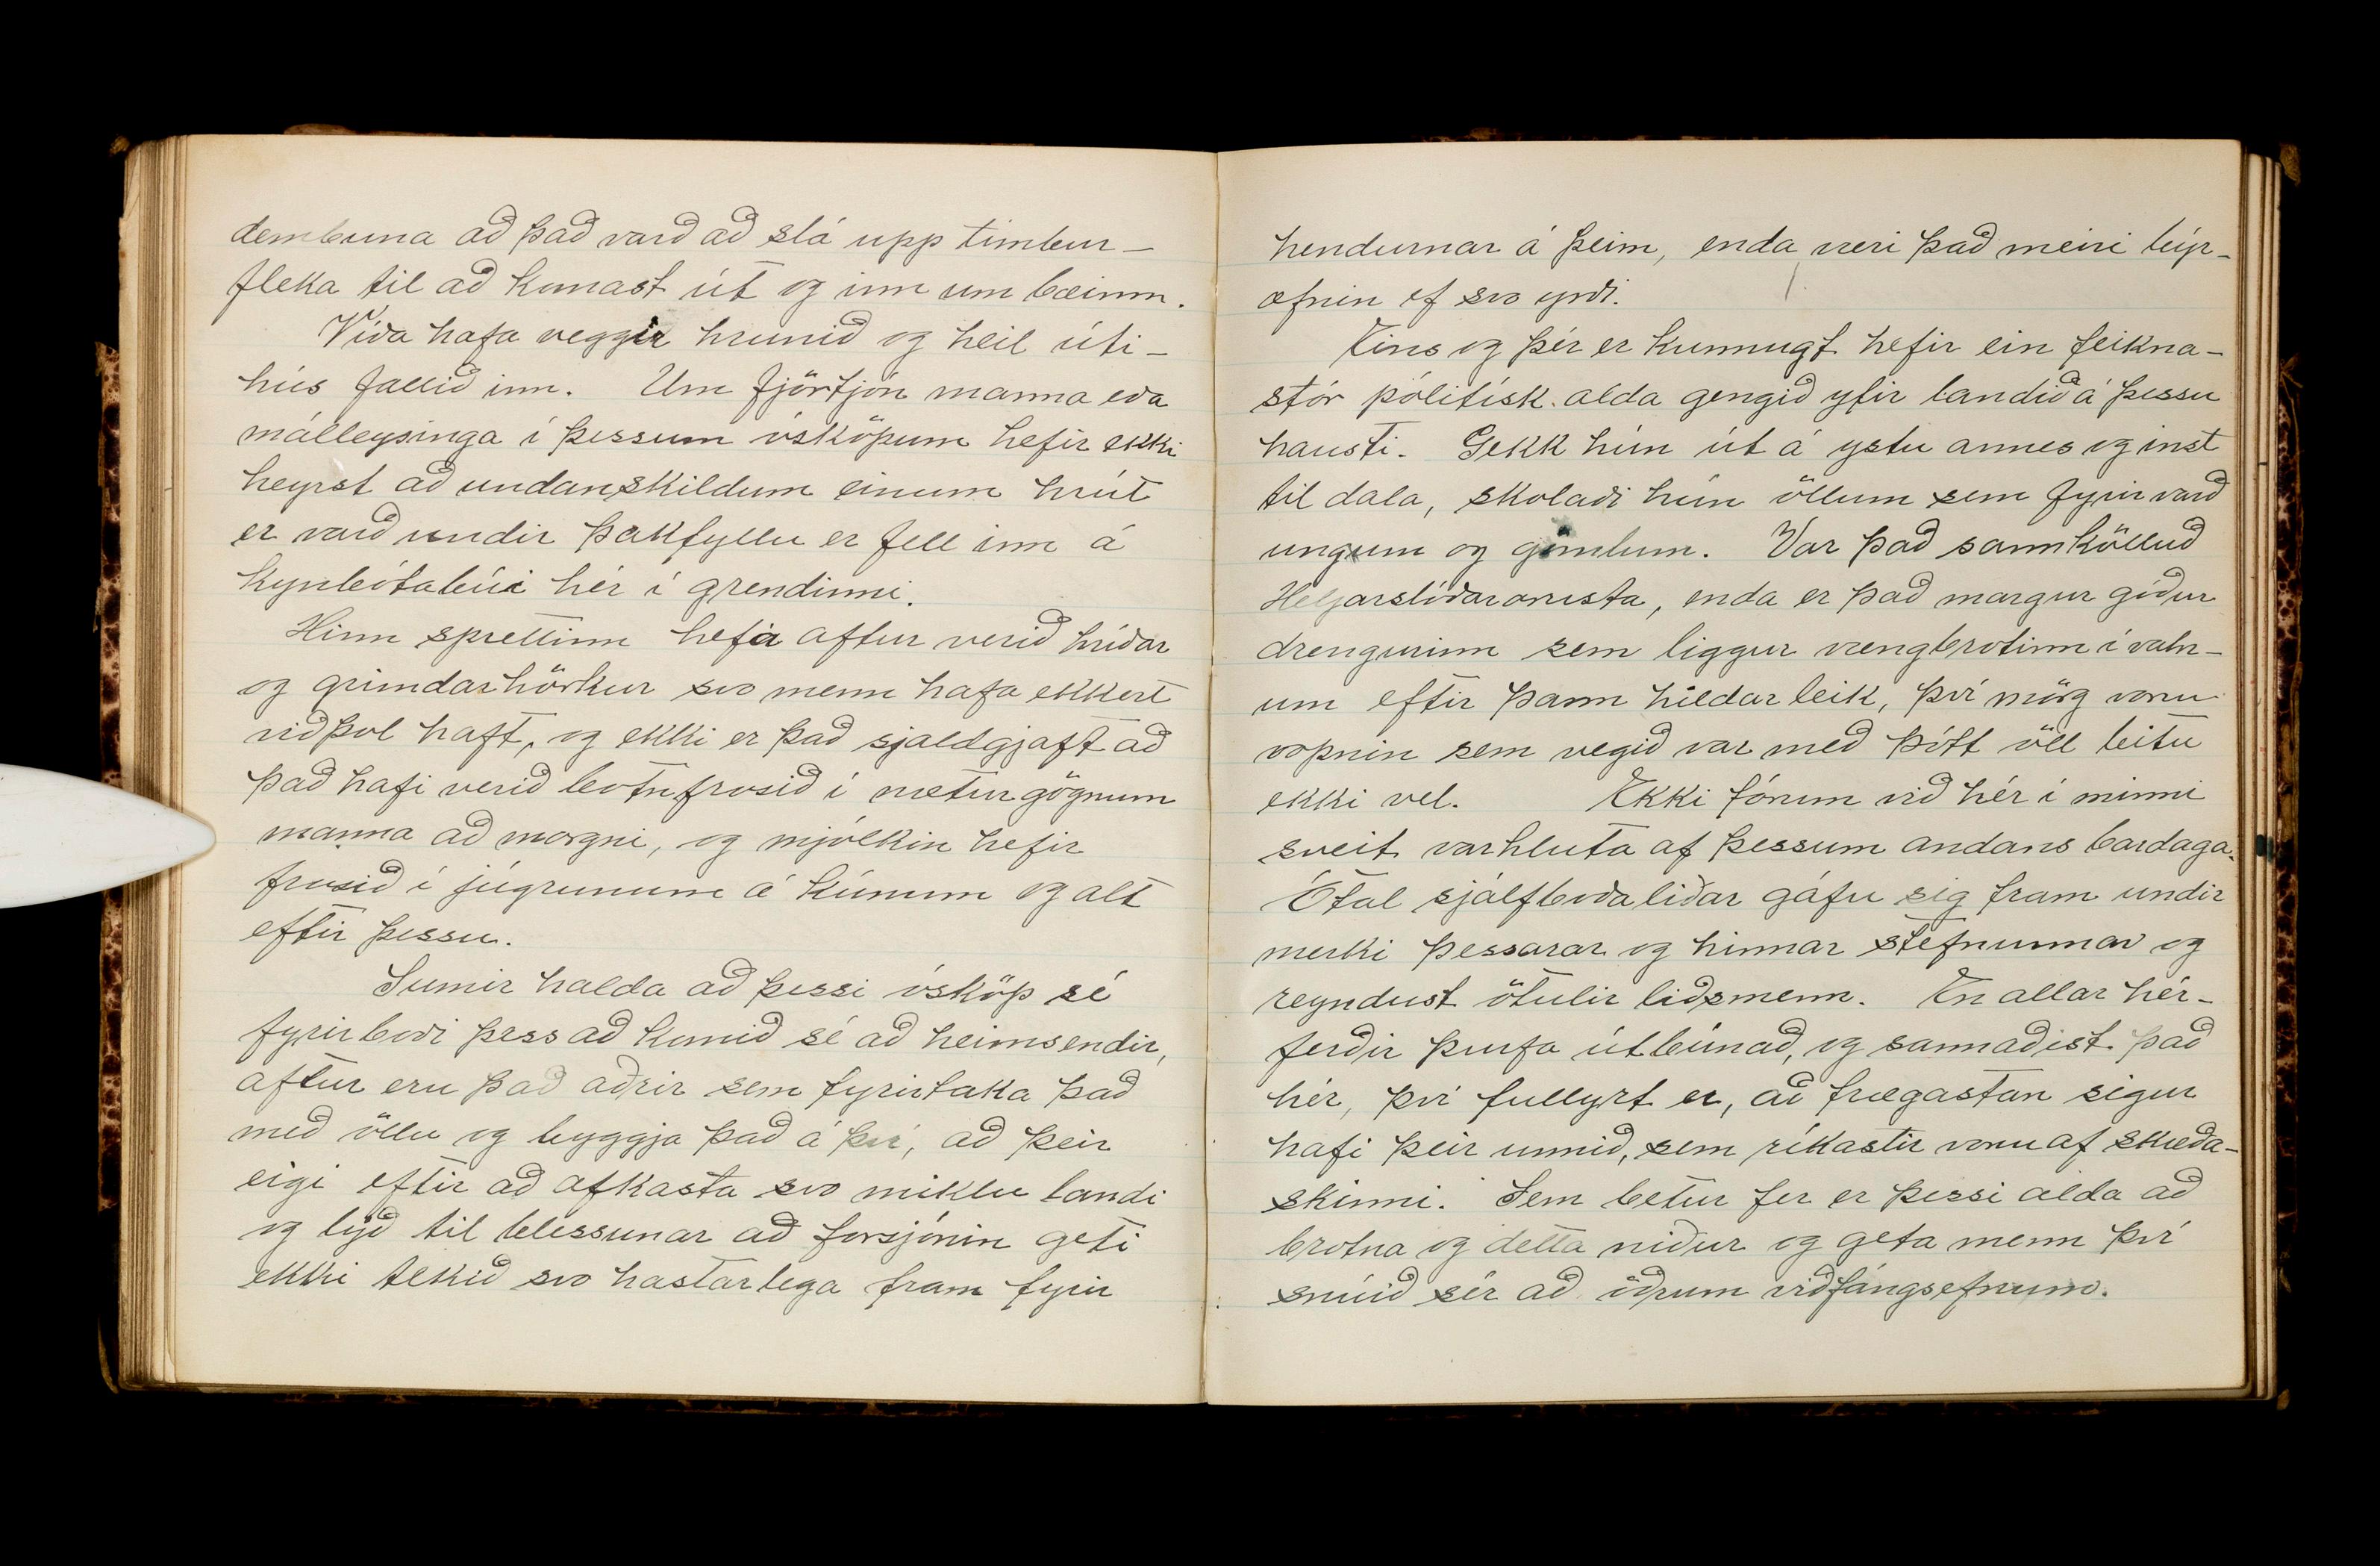 dembuna að það varð að slá upp timbur-
fleka til að komast út og inn um bæinn.
Víða hafa veggir hrunið og heil úti-
hús fallið inn. Um fjörtjón manna eða
málleysinga í þessum ósköpum hefir ekki
heyrst að undanskildum einum hrút
er varð undir þakfyllu er fell inn á
kynbótabúi hér í grendinni.
Hinn sprettinn hefir aftur verið hríðar
og grimdarhörkur svo menn hafa ekkert
viðþol haft, og ekki er það sjaldgjæft að
það hafi verið botnfrosið í næturgögnum
manna að morgni, og mjólkin hefir
frosið í júgrunum á kúnum og alt
eftir þessu.
Sumir halda að þessi ósköp sé
fyrirboði þess að komið sé að heimsendir,
aftur eru það aðrir sem fyrirtaka það
með öllu og byggja það á því, að þeir
eigi eftir að afkasta svo miklu landi
og lýð til blessunar að forsjónin geti
ekki tekið svo hastarlega fram fyrir
hendurnar á þeim, enda væri það meiri býr-
æfnin ef svo yrði.
Eins og þér er kunnugt hefir ein feikna-
stór pólitísk alda gengið yfir landið á þessu
hausti. Gekk hún út á ystu annes og inst
til dala, skolaði hún öllum sem fyrir varð
ungum og gömlum. Var það sannkölluð
Heljarslóðarorusta, enda er það margur góður
drengurinn sem liggur vængbrotinn í valn-
um eftir þann hildarleik, því mörg voru
vopnin sem vegið var með þótt öll bitu
ekki vel. Ekki fórum við hér í minni
sveit varhluta af þessum andans bardaga.
Ótal sjálfboðaliðar gáfu sig fram undir
merki þessarar og hinnar stefnunnar og
reyndust ötulir liðsmenn. En allar hér-
ferðir þurfa útbúnað, og sannaðist það
hér, því fullyrt er, að frægastan sigur
hafi þeir unnið, sem ríkastir voru af skæða-
skinni. Sem betur fer er þessi alda að
brotna og detta niður og geta menn því
snúið sér að öðrum viðfángsefnum.